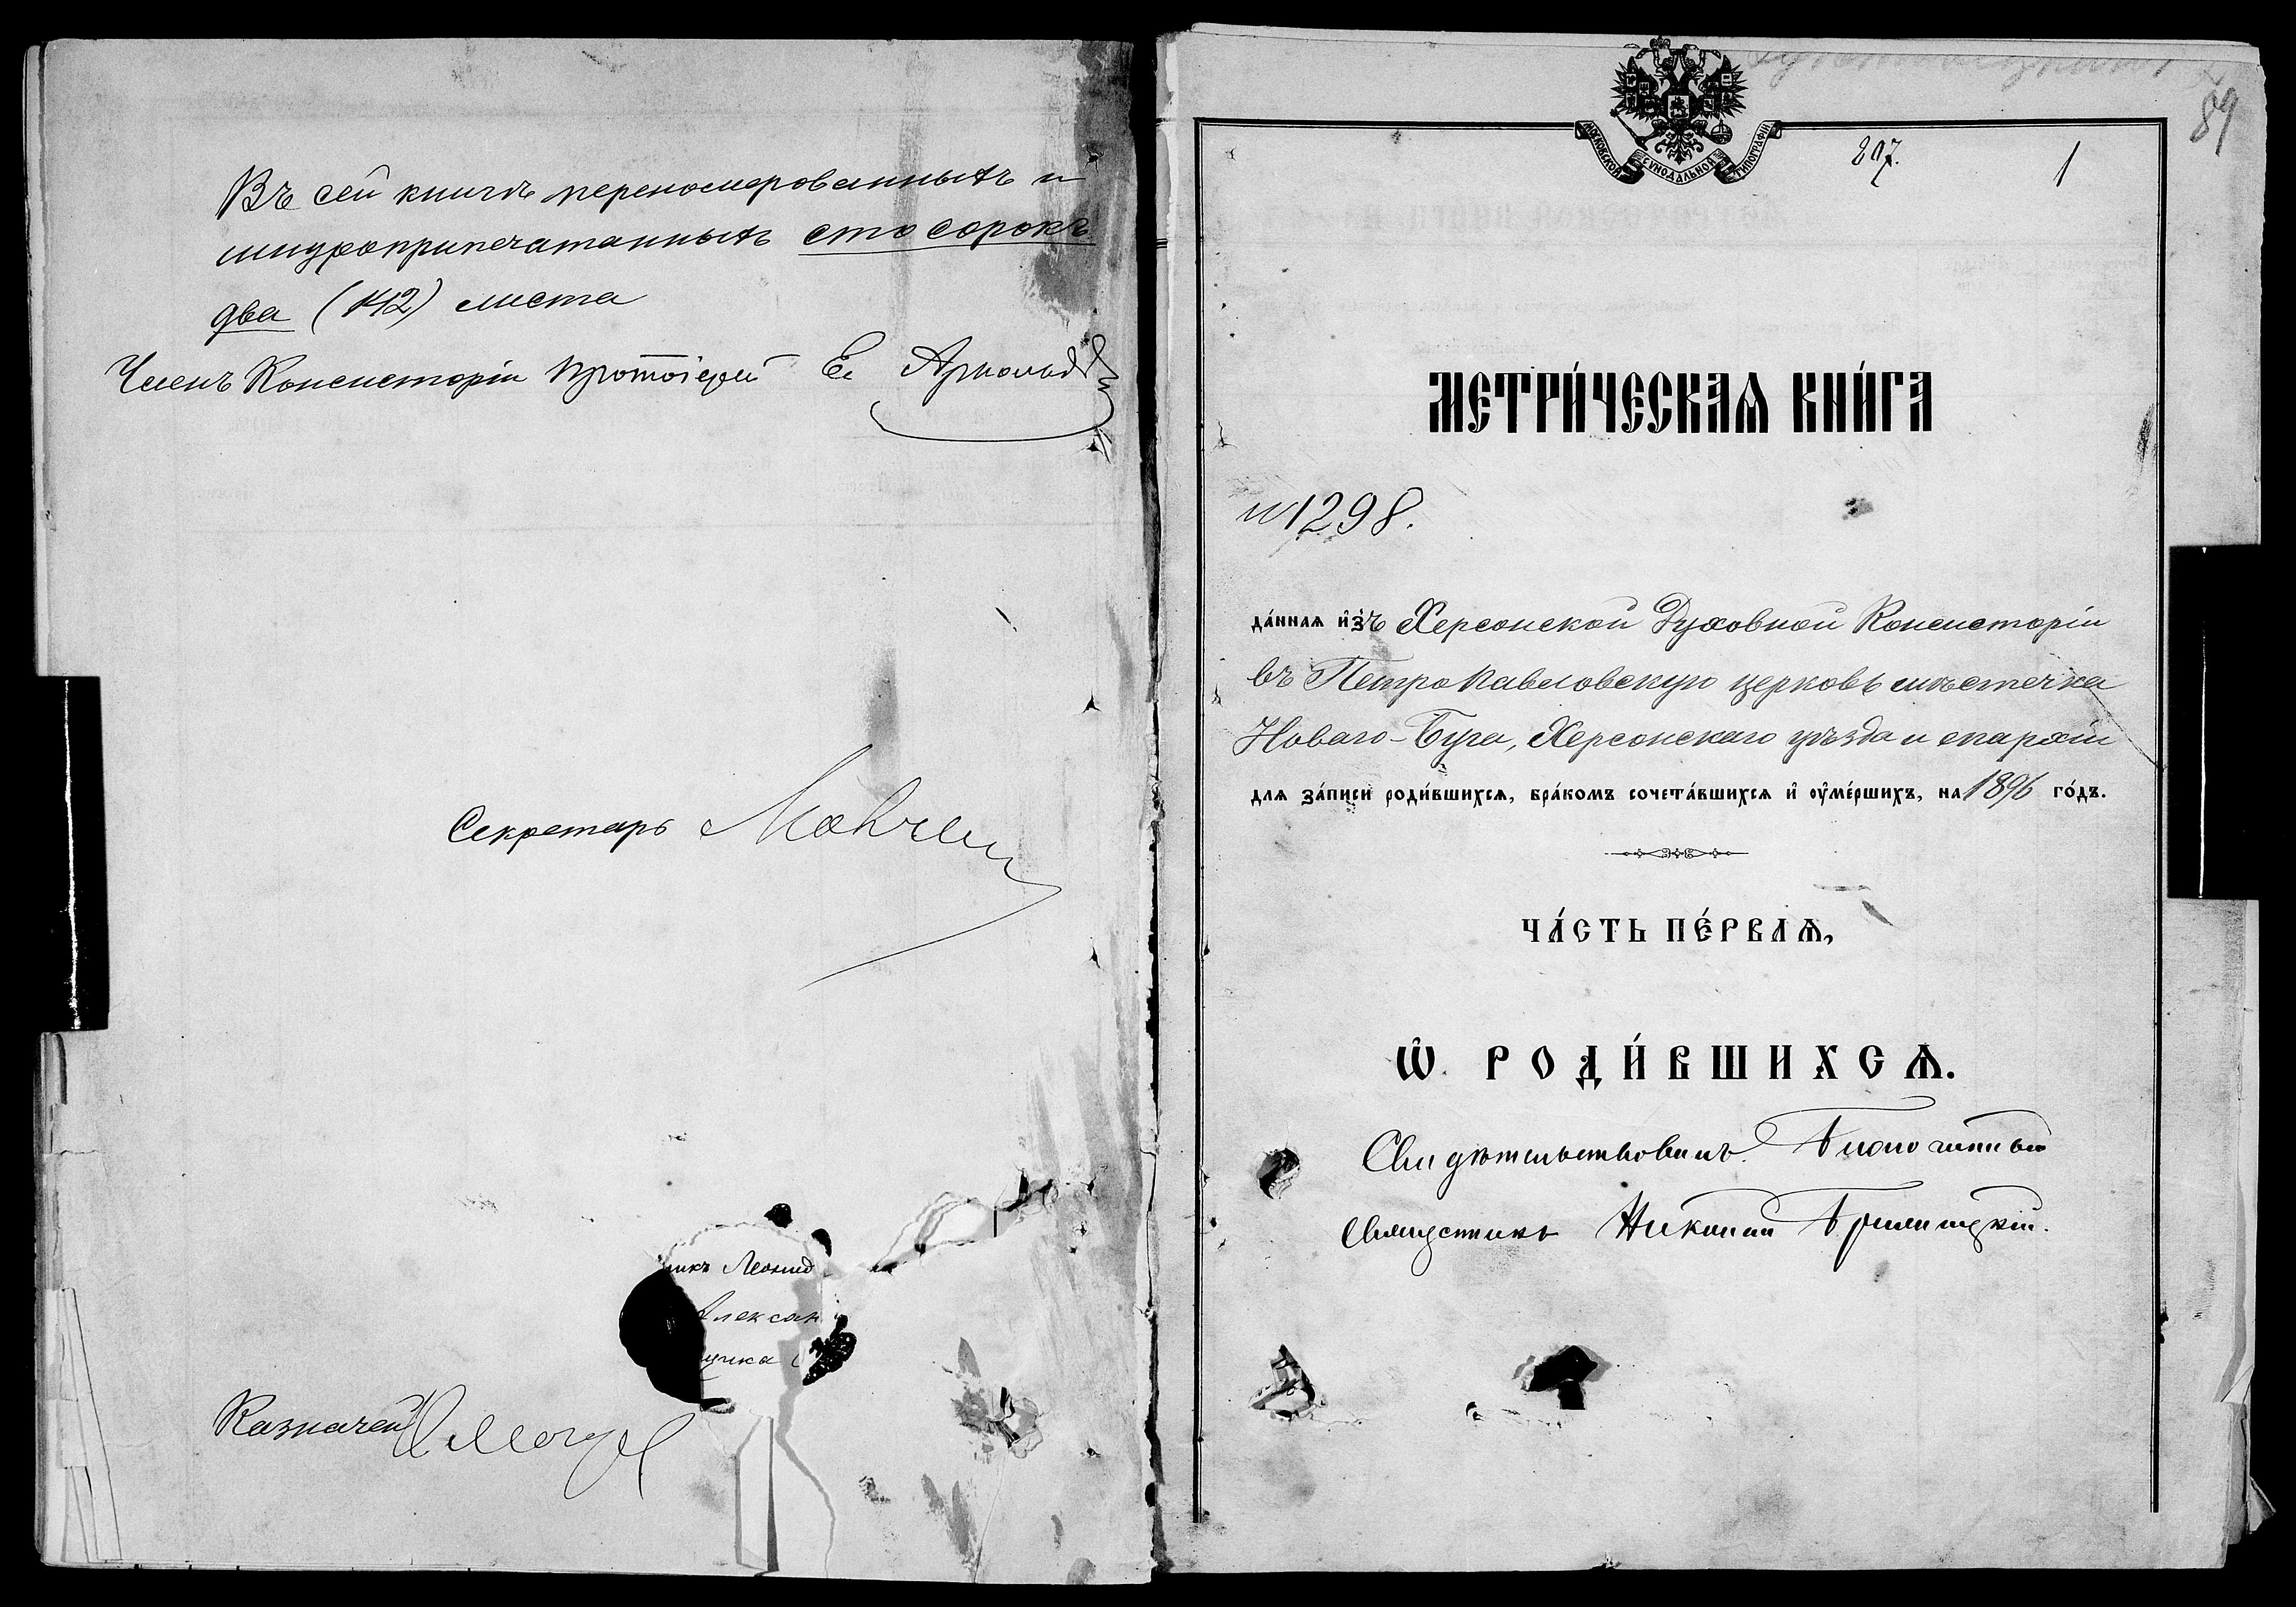 Въ сей книгѣ перенумерованныхъ и
шнуроприпечатанныхъ сто сорокъ
два (142) листа
Членъ Консисторіи Протоіерей Е. Арнольд
Секретарь
никъ Леонид
Алексан
Казначей
89
МОСКОВСКОЙ СѴНОДАЛЬНОЙ ТИПОГРАФІИ
207.
1
МЕТРИ́ЧЕСКАѦ КНИ́ГА
№ 1298.
да́ннаѧ и҆зъ Херсонской Духовной Консисторіи
въ Петропавловскую церковь мѣстечка
Новаго-Буга, Херсонскаго уѣзда и епархіи
для за́писи роди́вшихсѧ, бра́комъ сочета́вшихсѧ и҆ ѹ҆ме́ршихъ, на 1896 го́дъ.
ЧА́СТЬ ПЕ́РВАѦ,
Ѡ҆ РОДИ́ВШИХСѦ.
Свидѣтельствовалъ Благочинный
Священникъ Николай